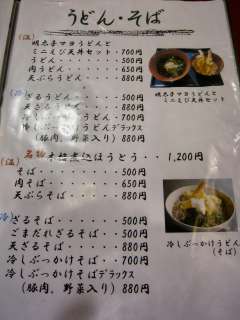 うどん・そば
(温)
明太子マヨうどんと
ミニえび天丼セット・・700円
うどん・・・・・・・・500円
肉うどん・・・・・・・650円
天ぷらうどん・・・・・880円
(冷)
ざるうどん・・・・・・500円
天ざるうどん・・・・・880円
冷しぶっかけうどん・・700円
冷しぶっかけうどんデラックス
(豚肉、野菜入り) 880円
(温)
名物
ほうとう・・1,200円
そば・・・・・・・・・500円
肉そば・・・・・・・・650円
天ぷらそば・・・・・・880円
(冷)
ざるそば・・・・・・・500円
ごまだれざるそば・・・500円
天ざるそば・・・・・・880円
冷しぶっかけそば・・・700円
冷しぶっかけそばデラックス
(豚肉、野菜入り) 880円
明太子マヨうどんと
ミニえび天丼セット
冷しぶっかけうどん
(そば)